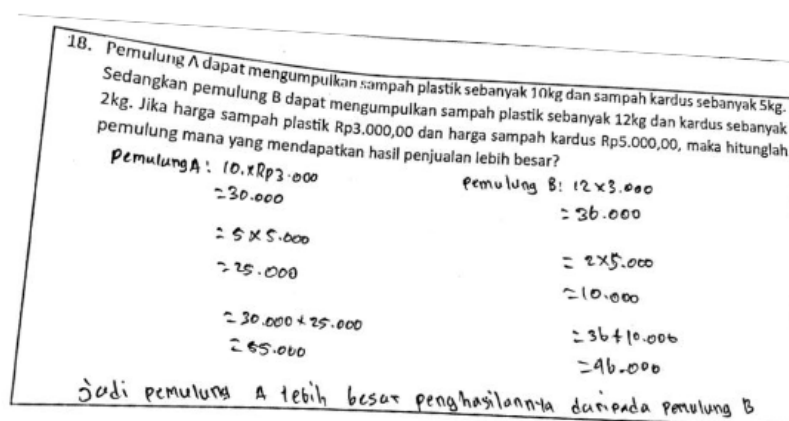 18. Pemulung A dapat mengumpulkan sampah plastik sebanyak 10kg dan sampah kardus sebanyak 5kg.
Sedangkan pemulung B dapat mengumpulkan sampah plastik sebanyak 12kg dan kardus sebanyak
2kg. Jika harga sampah plastik Rp3.000,00 dan harga sampah kardus Rp5.000,00, maka hitunglah
pemulung mana yang mendapatkan hasil penjualan lebih besar?
Pemulung A : 10.x Rp3.000
= 30.000
= 5 x 5.000
= 25.000
= 30.000 + 25.000
= 55.000
Pemulung B: 12 x 3.000
= 36.000
= 2 x 5.000
= 10.000
= 36 + 10.000
= 46.000
jadi pemulung A lebih besar penghasilannya daripada pemulung B